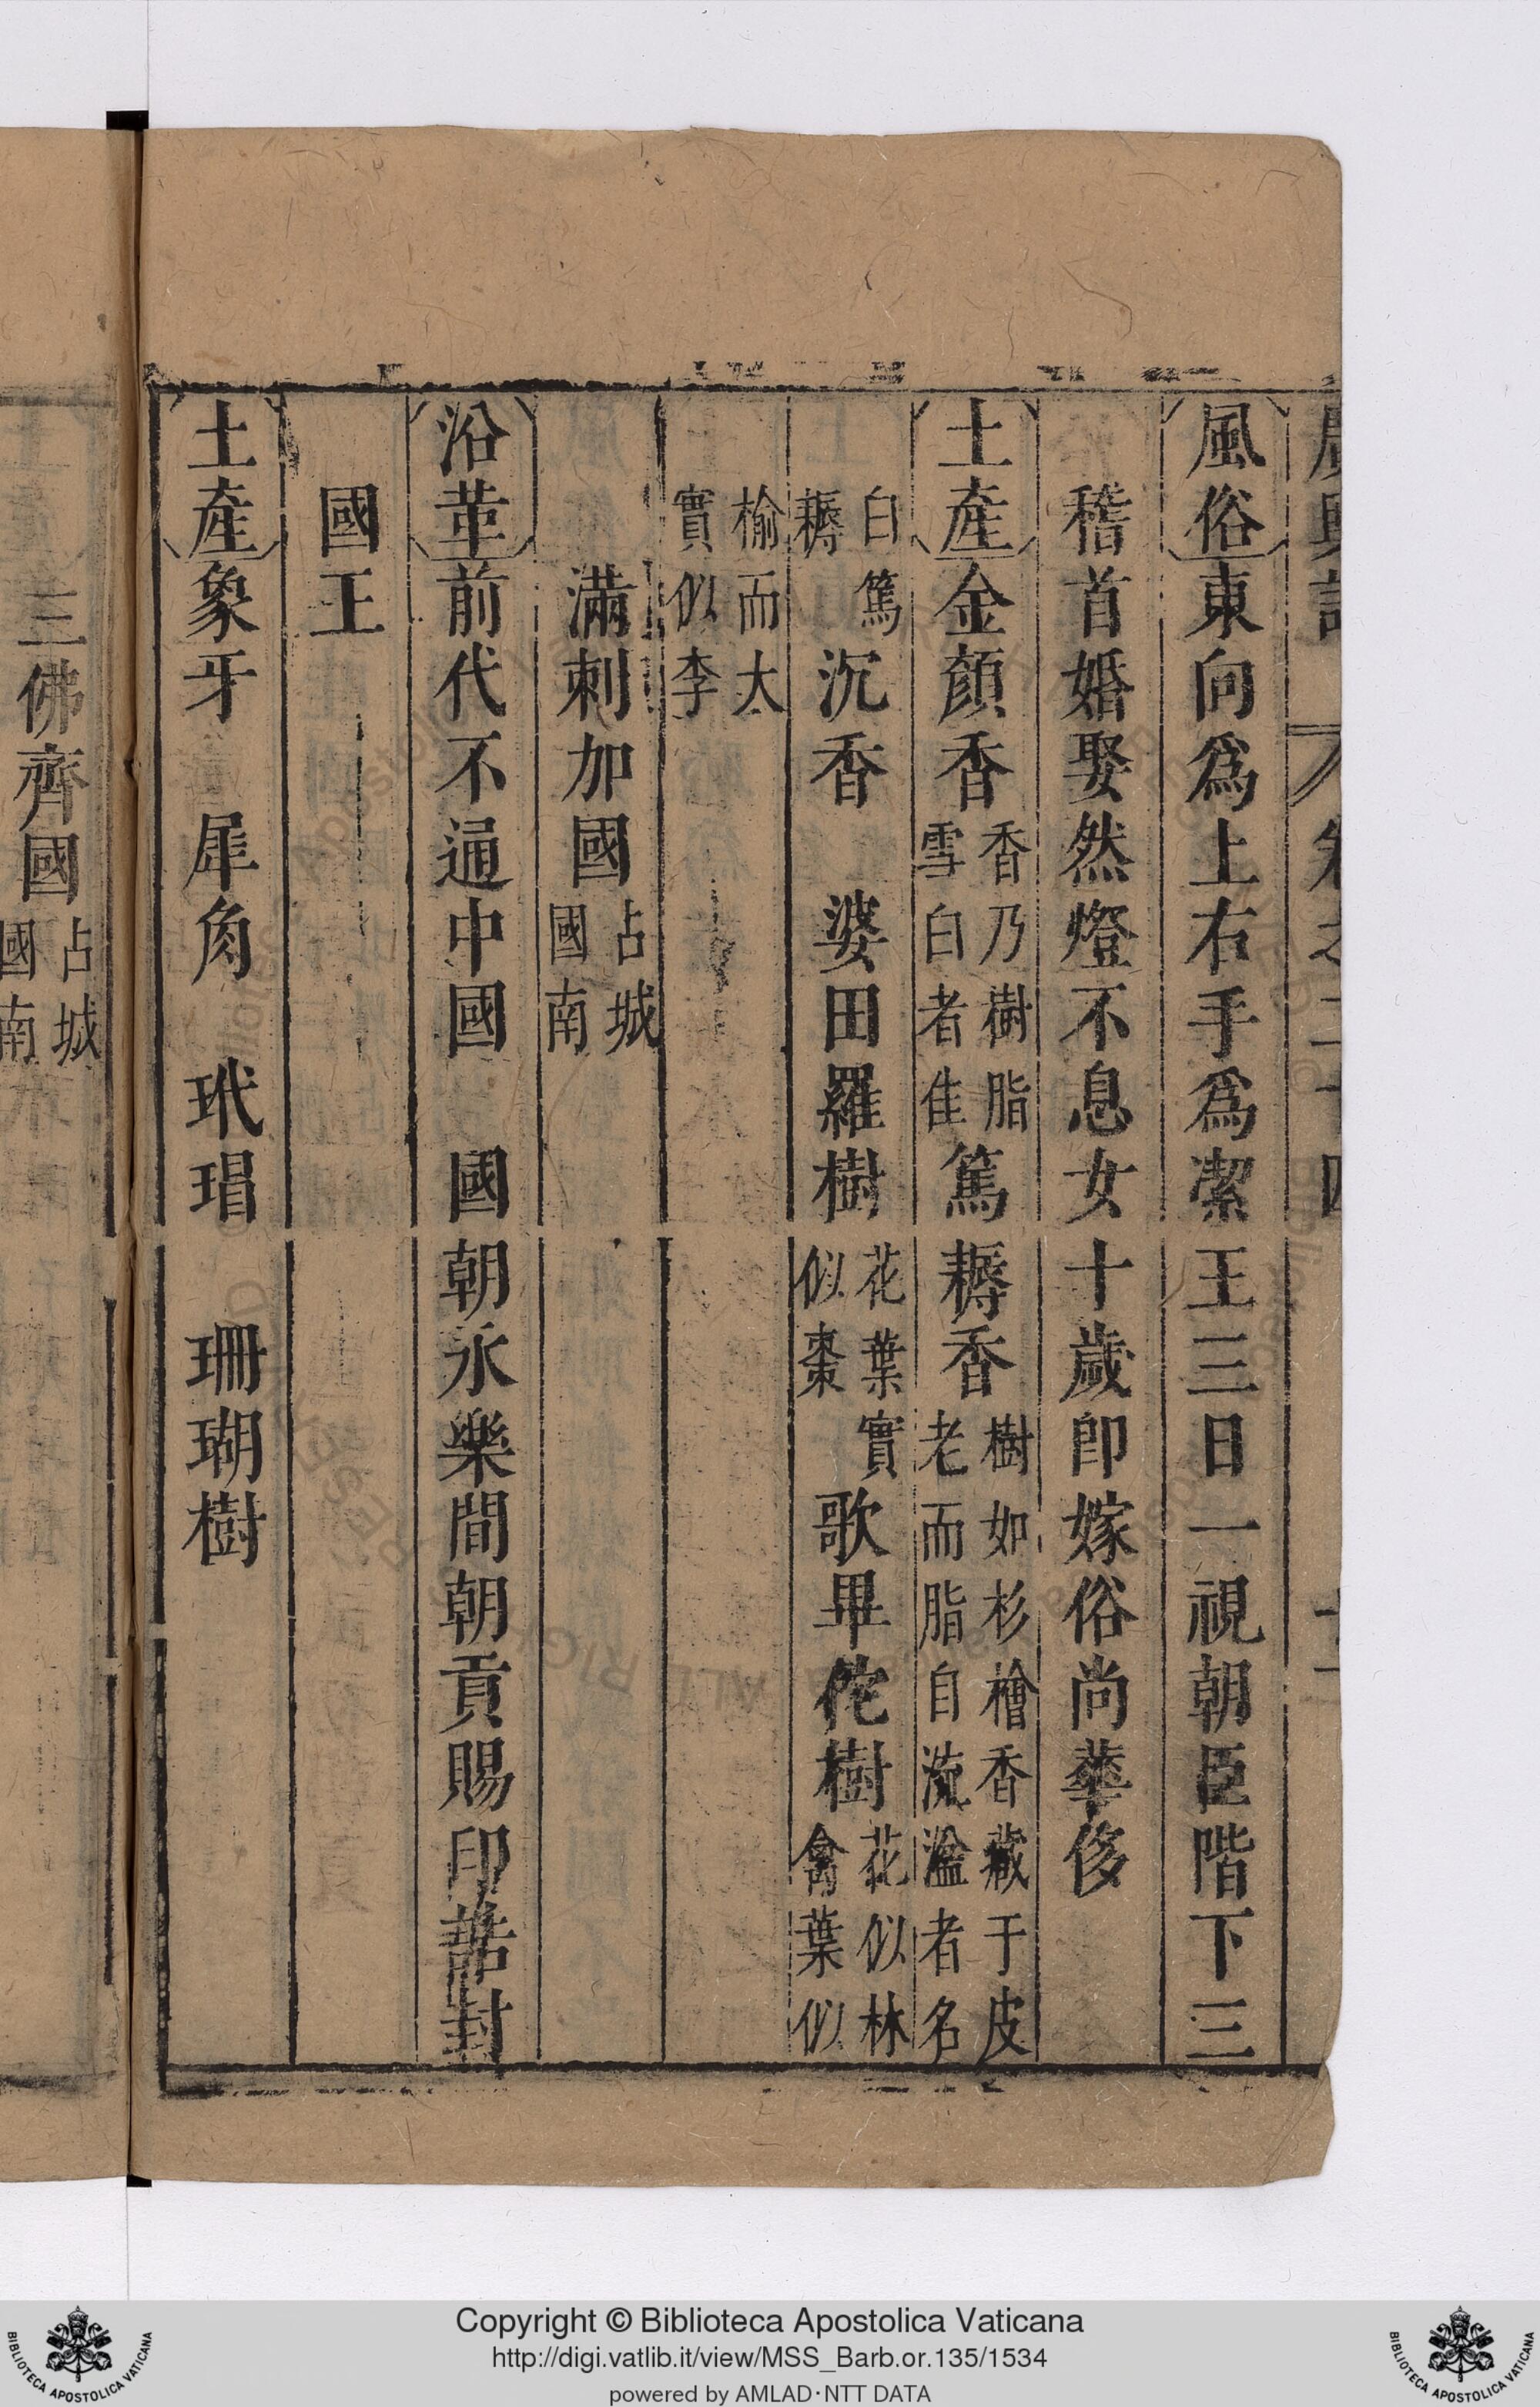 風俗東向爲上右手爲潔王三日一視朝臣階下三
稽首婚娶然燈不息女十歲卽嫁俗尚華侈
土産金顏香香乃樹脂雪白者佳篤耨香樹如杉檜香藏于皮老而脂自流溢者名
白篤耨沉香 婆田羅樹花葉實似棗歌畢佗樹花似林禽葉似
榆而大實似李
滿剌加國占城國南
沿革前代不通中國 國朝永樂間朝貢賜印誥封
國王
土産象牙 犀角 玳瑁 珊瑚樹
三佛齊國占城國南
Copyright © Biblioteca Apostolica Vaticana
http://digi.vatlib.it/view/MSS_Barb.or.135/1534
powered by AMLAD·NTT DATA
BIBLIOTECA APOSTOLICA VATICANA
BIBLIOTECA APOSTOLICA VATICANA